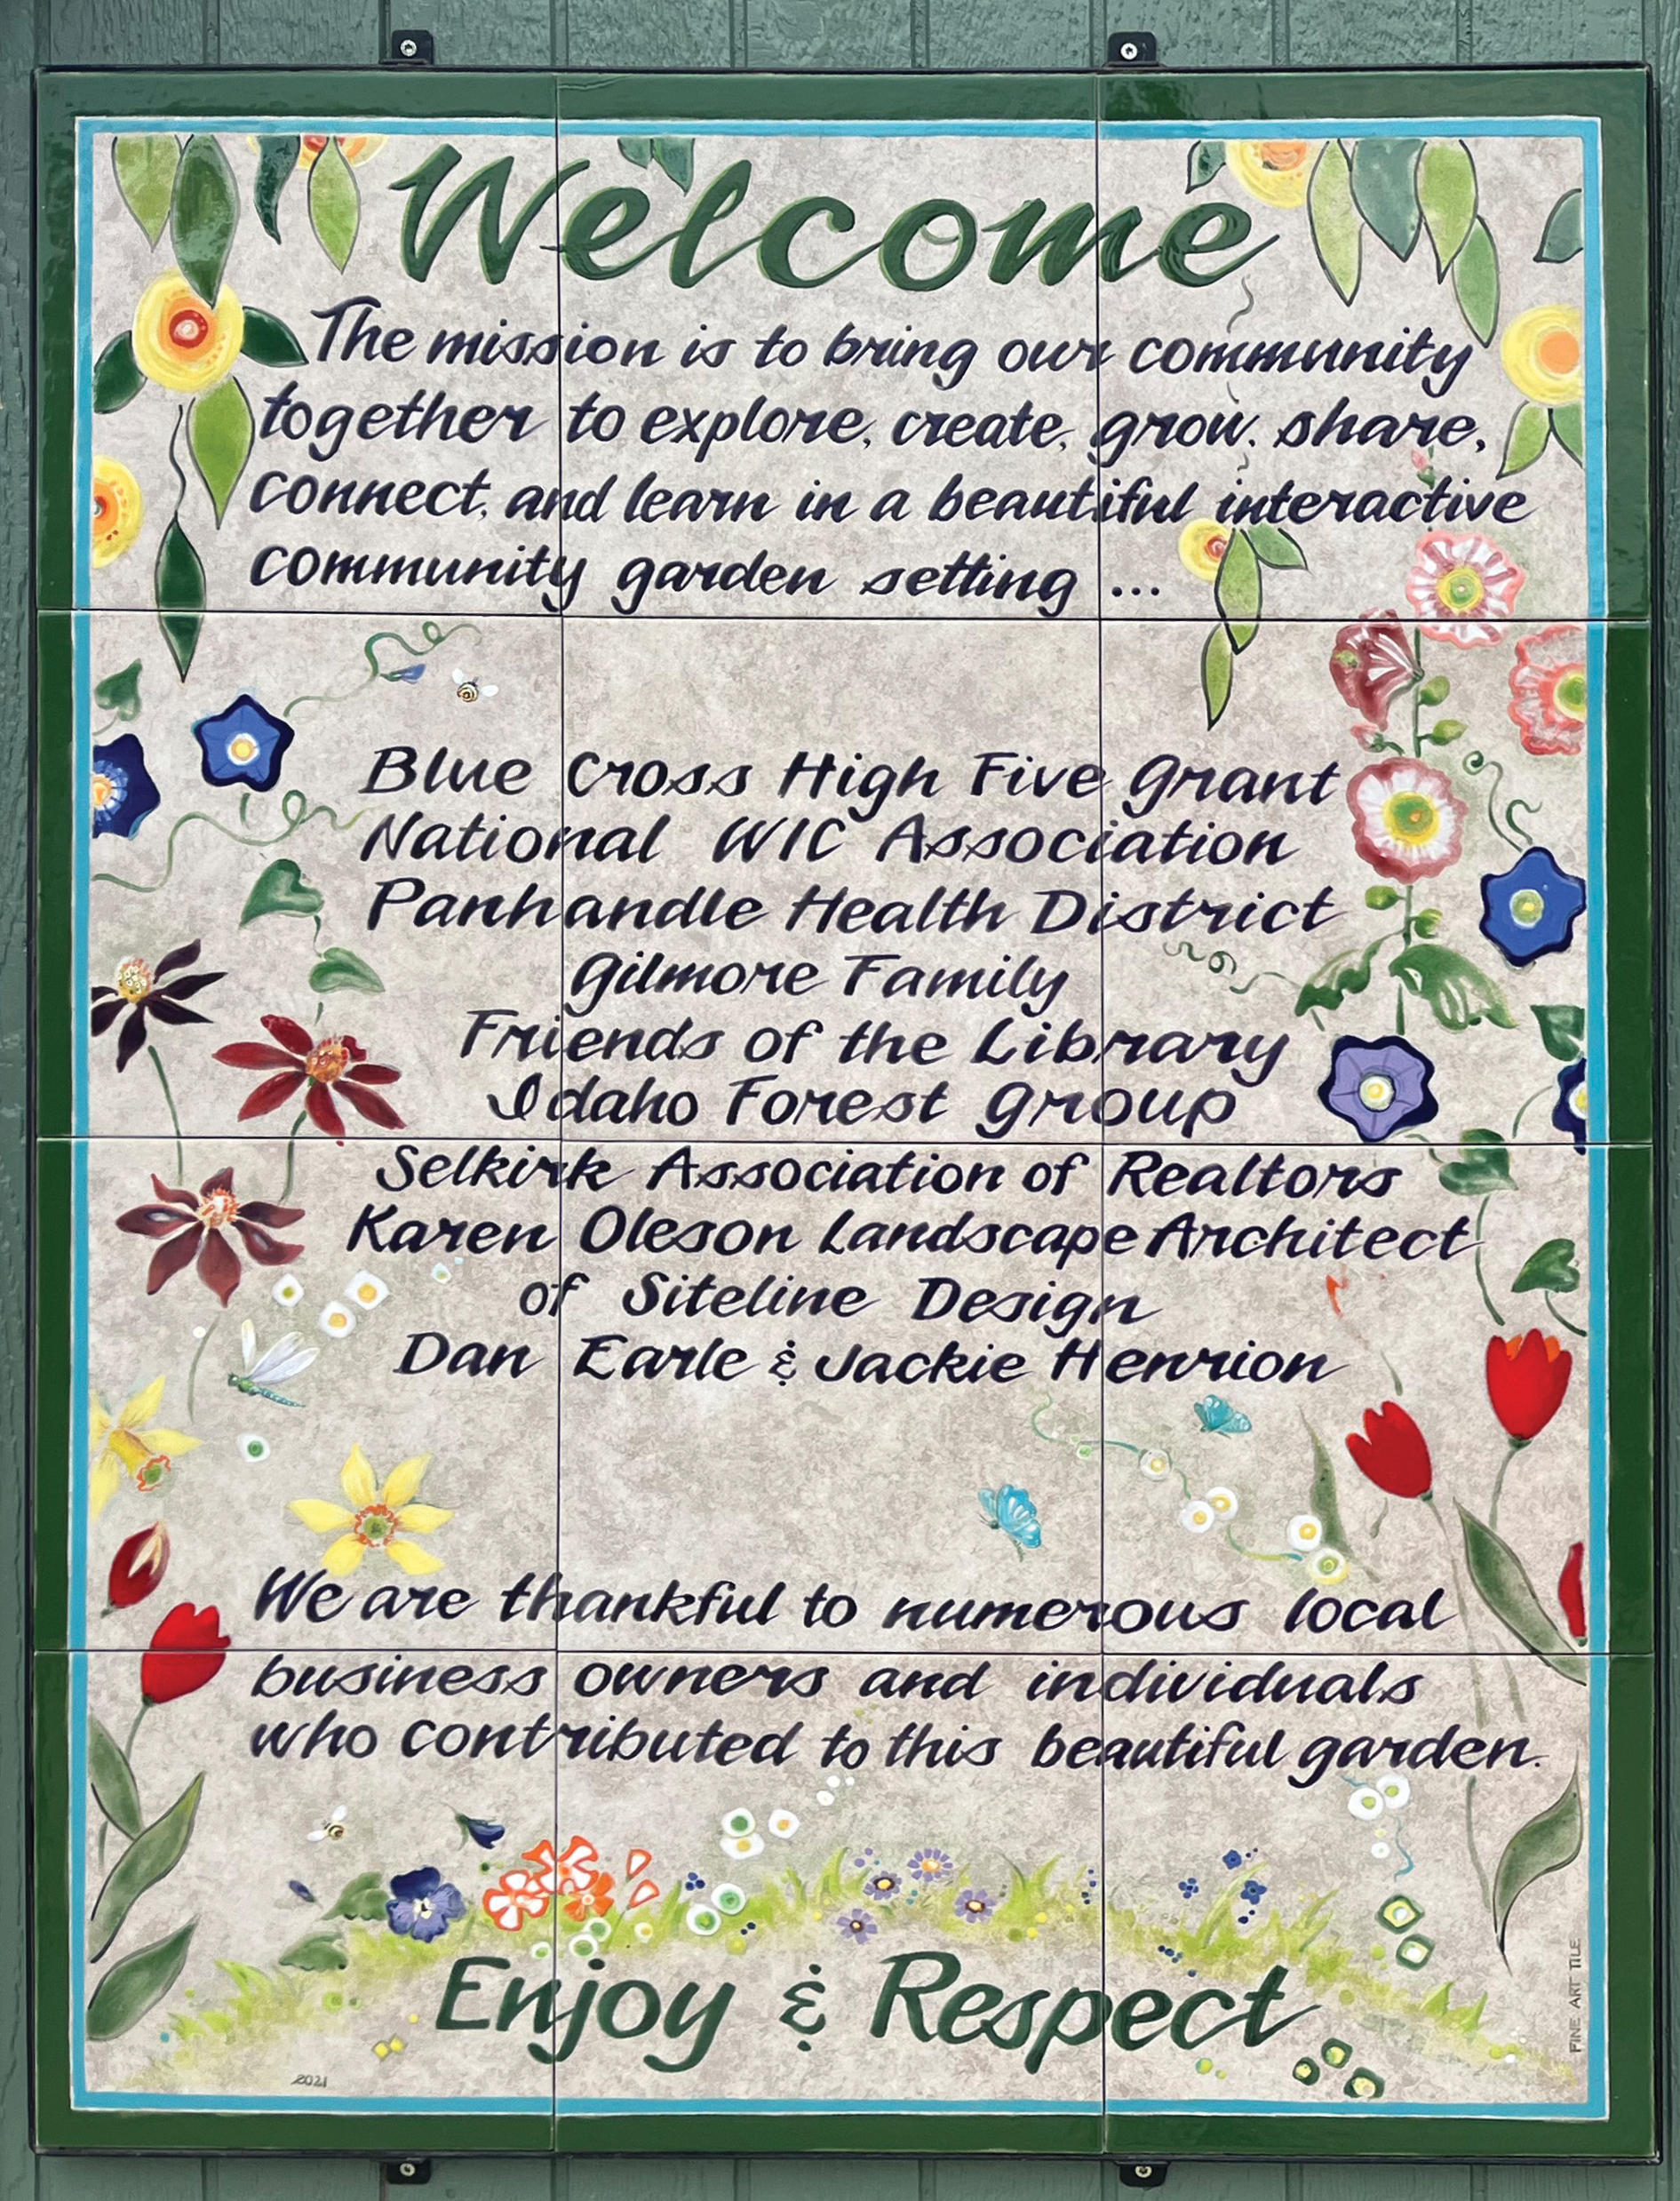 Welcome
The mission is to bring our community
together to explore, create, grow, share,
connect, and learn in a beautiful interactive
community garden setting ...
Blue Cross High Five Grant
National WIC Association
Panhandle Health District
Gilmore Family
Friends of the Library
Idaho Forest Group
Selkirk Association of Realtors
Karen Oleson Landscape Architect
of Siteline Design
Dan Earle & Jackie Henrion
We are thankful to numerous local
business owners and individuals
who contributed to this beautiful garden.
Enjoy & Respect
2021
FINE ART TILE